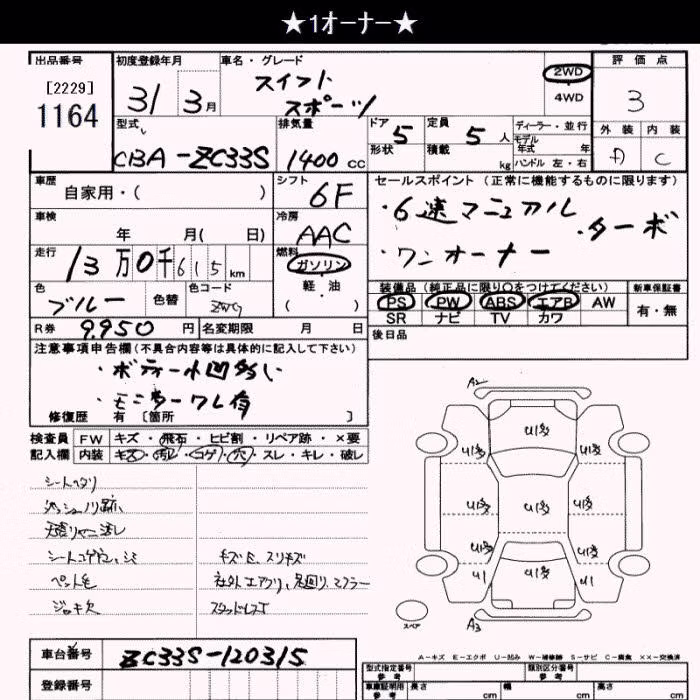 ★1オーナー★
出品番号
[2229]
1164
初度登録年月
31 3月
車名・グレード
スイフト
スポーツ
2WD
4WD
評価点
3
外装 内装
A C
型式
CBA-ZC33S
排気量
1400 cc
ドア 5
形状
定員 5人
積載 kg
ディーラー・並行
モデル
年式 年
ハンドル 左・右
車歴
自家用・( )
シフト
6F
セールスポイント (正常に機能するものに限ります)
・6速マニュアル
・ターボ
・ワンオーナー
車検
年 月( 日)
冷房
AAC
走行
13万0千615km
燃料
ガソリン
軽・油
( )
色
ブルー
色替
色コード
ZWG
装備品 (純正品に限り○をつけてください)
PS PW ABS エアB AW
SR ナビ TV カワ
新車保証書
有・無
R券 9.950 円 名変期限 月 日
後日品
注意事項申告欄(不具合内容等は具体的に記入して下さい)
・ボディー小凹多い
・モニターワレ有
修復歴 有 [箇所 ]
検査員
記入欄
FW キズ・飛石・ヒビ割・リペア跡・×要
内装 キズ・汚レ・コゲ・穴・スレ・キレ・破レ
シートヘタリ
ダッシュノリ跡
シートコゲ穴、シミ
ペット毛
ジャッキ欠
キズE、スリキズ
社外エアクリ、足廻り、マフラー
スタッドレス
A2
U1多
U1多 U1多
U1多 U1多 U1多
U1多 U1多
U1 U1多 U1
A3
スペア
A-キズ E-エクボ U-凹み W-補修跡 S-サビ C-腐食 ××-交換済
車台番号 ZC33S-120315
登録番号
型式指定番号
参考
類別区分番号
参考
車庫証明用
参考
長さ cm 幅 cm 高さ cm